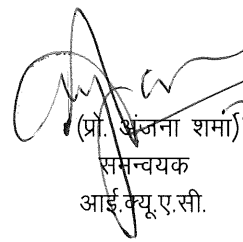 (प्रो. अंजना शर्मा)
समन्वयक
आई.क्यू.ए.सी.